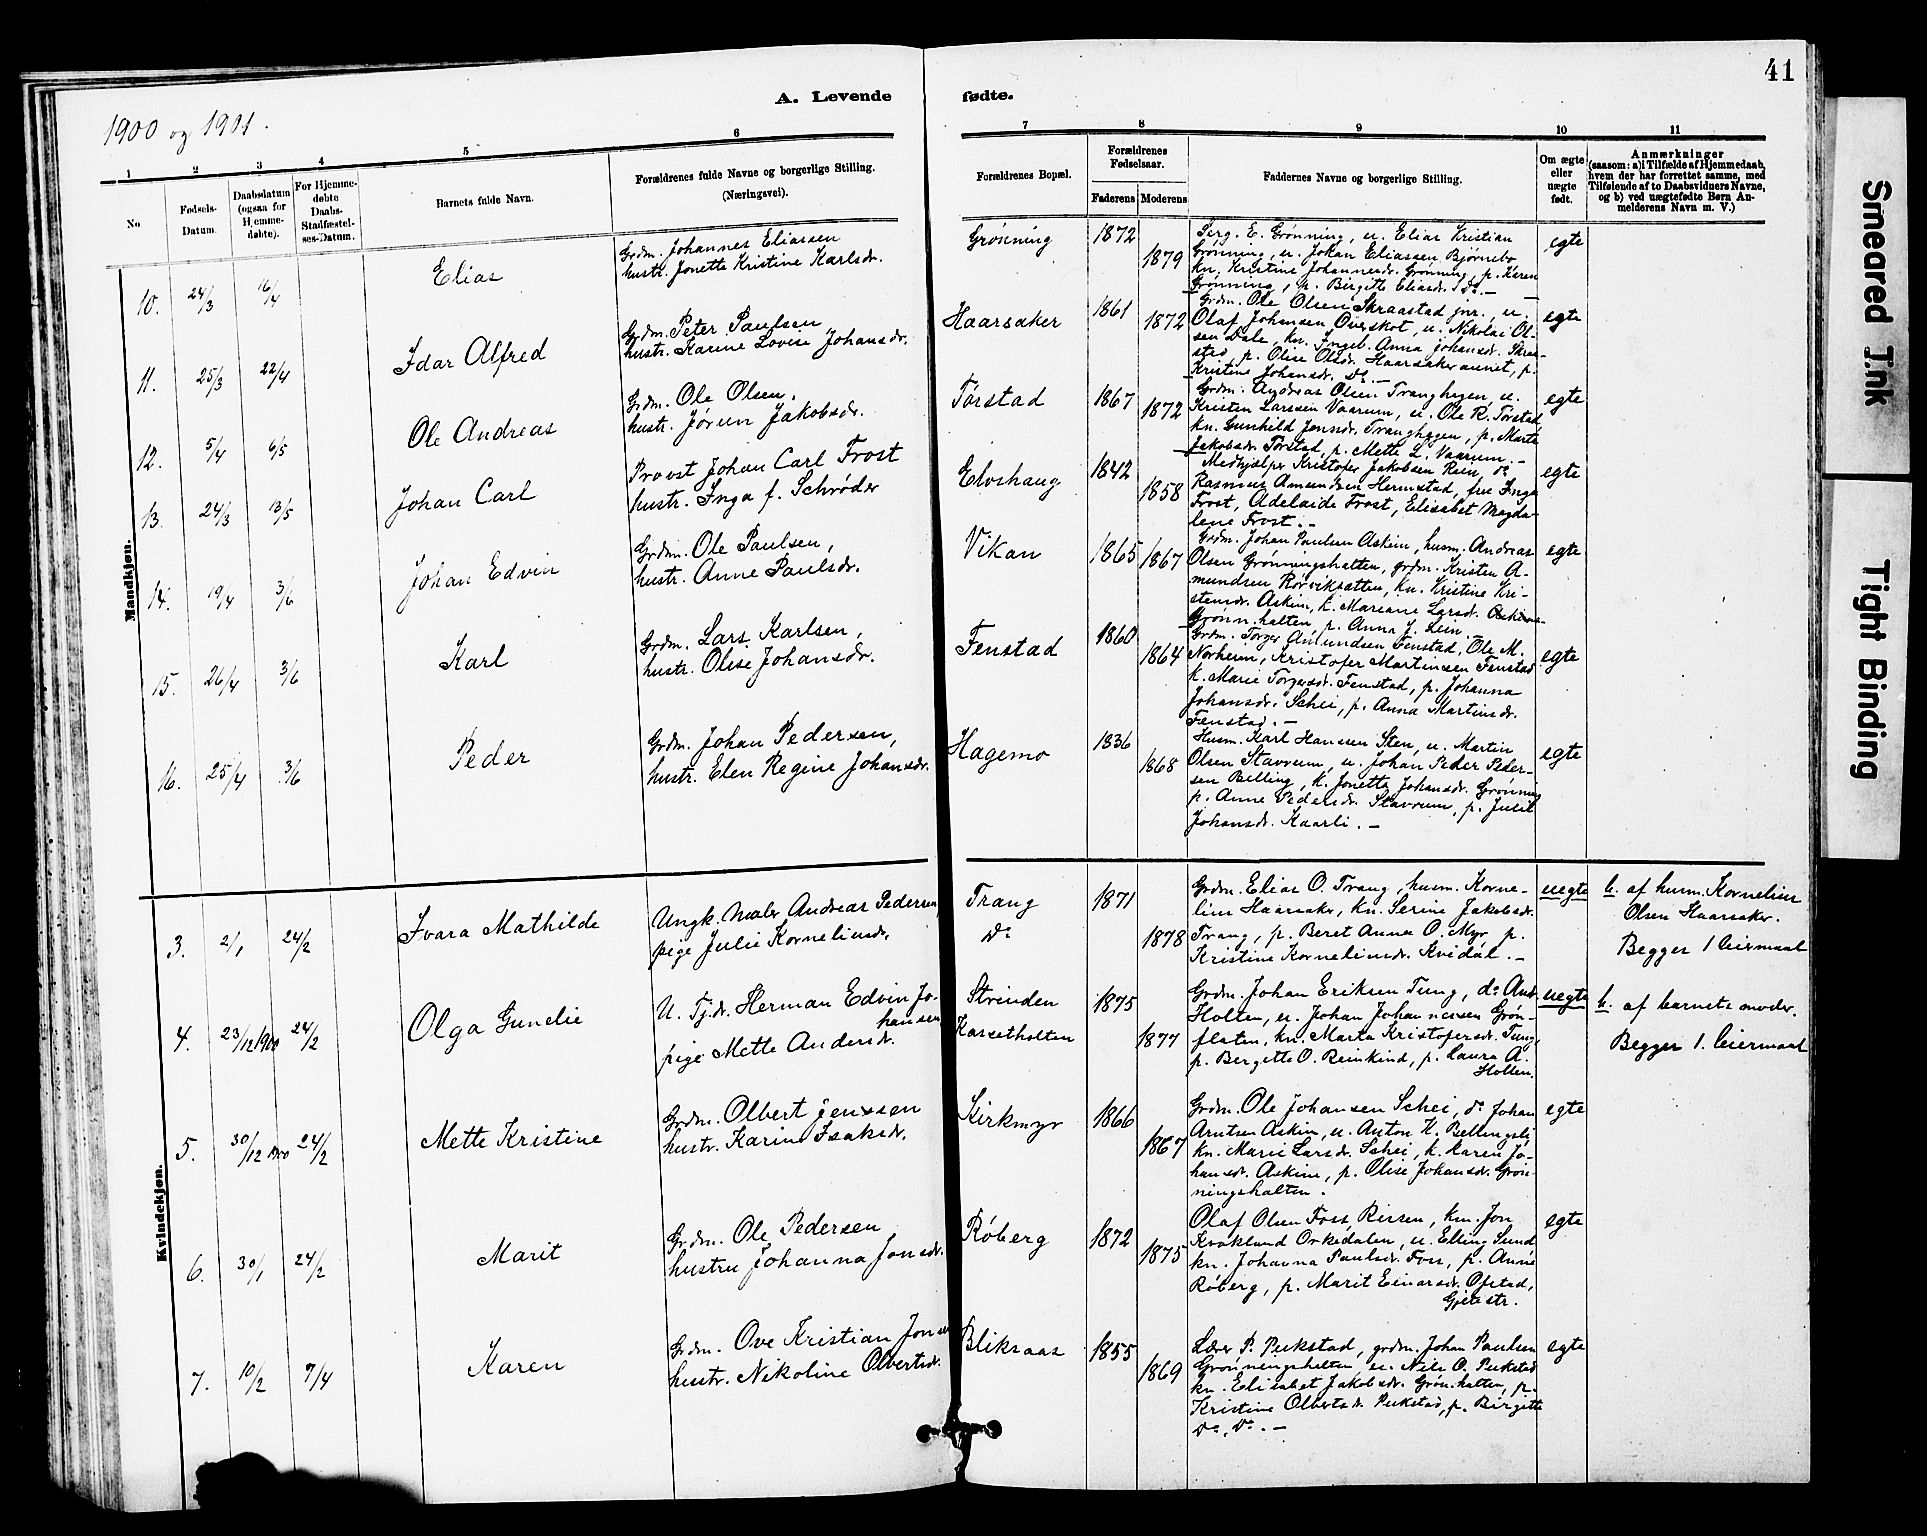 41
A. Levende fødte.
1900 og 1901.
1 2 3 4 5 6 7 8 9 10 11
No.
Fødsels-
Datum.
Daabsdatum
(ogsaa for
Hjemme-
døbte).
For Hjemme-
døbte
Daabs-
Stadfæstel-
ses-Datum.
Barnets fulde Navn.
Forældrenes fulde Navne og borgerlige Stilling.
(Næringsvei).
Forældrenes Bopæl.
Forældrenes
Fødselsaar.
Faderens Moderens
Faddernes Navne og borgerlige Stilling.
Om ægte
eller
uægte
født.
Anmærkninger
(saasom: a) i Tilfælde af Hjemmedaab,
hvem der har forrettet samme, med
Tilføiende af to Daabsvidners Navne,
og b) ved uægtefødte Børn An-
melderens Navn m. V.)
Mandkjøn.
10. 24/3 16/4 Elias
Grdm. Johannes Eliassen
hustr. Jonetta Kristine Karlsdr.
Grønning 1872 1879
Serg. E. Grønning, u. Elias Kristian
Grønning, u. Johan Eliassen Bjørnebo
kn. Kristine Johannesdr. Grønning, p. Karen
Grønning, p. Birgitte Eliasdr. do. –
egte
11. 25/3 22/4 Idar Alfred
Grdm. Peter Paulsen
hustr. Karine Lovise Johansdr.
Haarsaker 1861 1872
Grdm. Ole Olsen Skraastad jnr., u.
Olaf Johansen Overskot, u. Nikolai Ol-
sen Dale, kn. Ingeb. Anna Johansdr. Skra-
stad, p. Olise Olsdr. Haarsakeraunet, p.
Kristine Johansdr. do. –
egte
12. 5/4 6/5 Ole Andreas
Grdm. Ole Olsen,
hustr. Jørun Jakobsdr.
Tørstad 1867 1872
Grdm. Andreas Olsen Tranghagen, u.
Kristen Larssen Vaarum, u. Ole R. Tørstad
kn. Gunhild Jonsdr. Tranghagen, p. Marta
Jakobsdr. Tørstad, p. Mette L. Vaarum. –
egte
13. 24/3 13/5 Johan Carl
Provst Johan Carl Frost
hustr. Inga f. Schrøder
Elvshaug 1842 1858
Medhjælper Kristofer Jakobsen Rein, do
Rasmus Amundsen Hermstad, fru Inga
Frost, Adelaide Frost, Elisabet Magda-
lene Frost. –
egte
14. 19/4 3/6 Johan Edvin
Grdm. Ole Paulsen,
hustr. Anne Paulsdr.
Vikan 1865 1867
Grdm. Johan Paulsen Askim, husm. Andreas
Olsen Grønningshatten, grdm. Kristen A-
mundsen Rørviksætten, kn. Kristine Kri-
stensdr. Askim, k. Mariane Larsdr.
Grønn.hatten, p. Anna J. Lein. –
egte
15. 26/4 3/6 Karl
Grdm. Lars Karlsen,
hustr. Olise Johansdr.
Fenstad 1860 1864
Grdm. Torger Amundsen Fenstad, Ole M.
Norheim, Kristofer Martinsen Fenstad
k. Marie Torgersdr. Fenstad, p. Johanna
Johansdr. Schei, p. Anna Martinsdr.
Fenstad. –
egte
16. 25/4 3/6 Peder
Grdm. Johan Pedersen,
hustr. Elen Regine Johansdr.
Hagemo 1836 1868
Husm. Karl Hanssen Sten, u. Martin
Olsen Stavrum, u. Johan Peder Peder-
sen Belling, k. Jonetta Johansdr. Grønning
p. Anne Pedersdr. Stavrum, p. Julie
Johansdr. Kaarli. –
egte
Kvindekjøn.
3. 2/1 24/2 Ivara Mathilde
Ungk. maler Andreas Pedersen,
pige Julie Kornelinsdr.
Trang
do
1871 1878
Grdm. Elias O. Trang, husm. Korne-
lius Haarsaker, kn. Serine Jakobsdr.
Trang, p. Beret Anna O. Myr p.
Kristine Kornelinsdr. Kvidal. –
uegte
b. af husm. Kornelius
Olsen Haarsaker.
Begges 1 leiermaal
4. 23/12 1900 24/2 Olga Gunelie
U. Tj.dr. Herman Edvin Jo-
hansen
pige Mette Andersdr.
Strinden
Kassetholten
1875 1877
Grdm. Johan Eriksen Tung, do And.
Holten, u. Johan Johannessen Grøn-
flaten, kn. Marta Kristofersdr. Tung,
p. Bergitte O. Reinkind, p. Laura A.
Holten.
uegte
b. af barnets moder.
Begges 1. leiermaal
5. 30/12 1900 24/2 Mette Kristine
Grdm. Olbert Jenssen
hustr. Karin Isaksdr.
Kirkmyr 1866 1867
Grdm. Ole Johansen Schei, do Johan
Arntsen Askim, u. Anton K. Bellingsli
kn. Marie Larsdr. Schei, k. Karen Jo-
hansdr. Askim, p. Olise Johansdr. Grøn-
ningshatten.
egte
6. 30/1 24/2 Marit
Grdm. Ole Pedersen
hustru Johanna Jonsdr.
Røberg 1872 1875
Olaf Olsen Foss Rissen, km. Jon
Kvakland Orkedalen, u. Elling Sund
kn. Johanna Paulsdr. Foss, p. Anne
Røberg, p. Marit Einarsdr. Ofstad,
Gjetestr.
egte
7. 10/2 7/4 Karen
Grdm. Ove Kristian Jonsen
hustr. Nikoline Olbertsdr.
Bliksaas 1855 1869
Lærer P. Pukstad, grdm. Johan Paulsen
Grønningshatten, u. Nils O. Pukstad
kn. Elisabet Jakobsdr. Grøn.hatten, p.
Kristine Olbertsdr. Pukstad, p. Birgitte
do, do. –
egte
Smeared Ink
Tight Binding